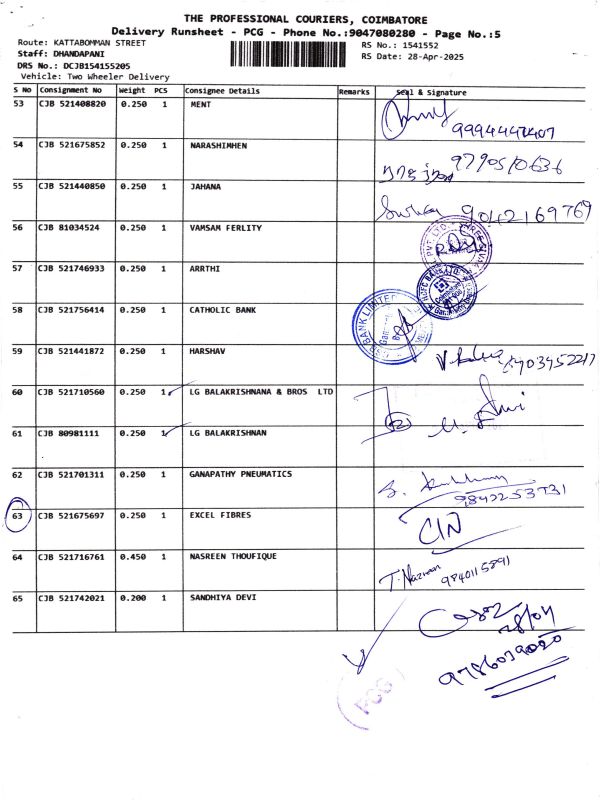 THE PROFESSIONAL COURIERS, COIMBATORE
Delivery Runsheet - PCG - Phone No.:9047080280 - Page No.:5
Route: KATTABOMMAN STREET
RS No.: 1541552
Staff: DHANDAPANI
RS Date: 28-Apr-2025
DRS No.: DCJB154155205
Vehicle: Two Wheeler Delivery
S No Consignment No Weight PCS Consignee Details Remarks Seal & Signature
53 CJB 521408820 0.250 1 MENT
54 CJB 521675852 0.250 1 NARASHIMHEN 9790510636
55 CJB 521440850 0.250 1 JAHANA 9042169769
56 CJB 81034524 0.250 1 VAMSAM FERLITY
57 CJB 521746933 0.250 1 ARRTHI
58 CJB 521756414 0.250 1 CATHOLIC BANK
59 CJB 521441872 0.250 1 HARSHAV
60 CJB 521710560 0.250 1 LG BALAKRISHNANA & BROS LTD
61 CJB 80981111 0.250 1 LG BALAKRISHNAN
62 CJB 521701311 0.250 1 GANAPATHY PNEUMATICS 9842253731
63 CJB 521675697 0.250 1 EXCEL FIBRES
64 CJB 521716761 0.450 1 NASREEN THOUFIQUE 9840115891
65 CJB 521742021 0.200 1 SANDHIYA DEVI
28/04
9786039020
PCG